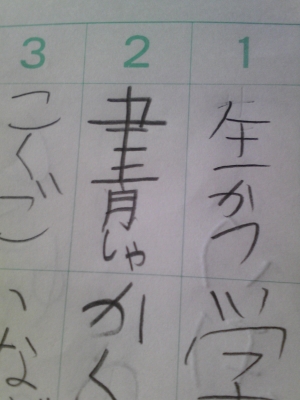 1
生かつ
学
2
書しゃ
かく
3
こくご